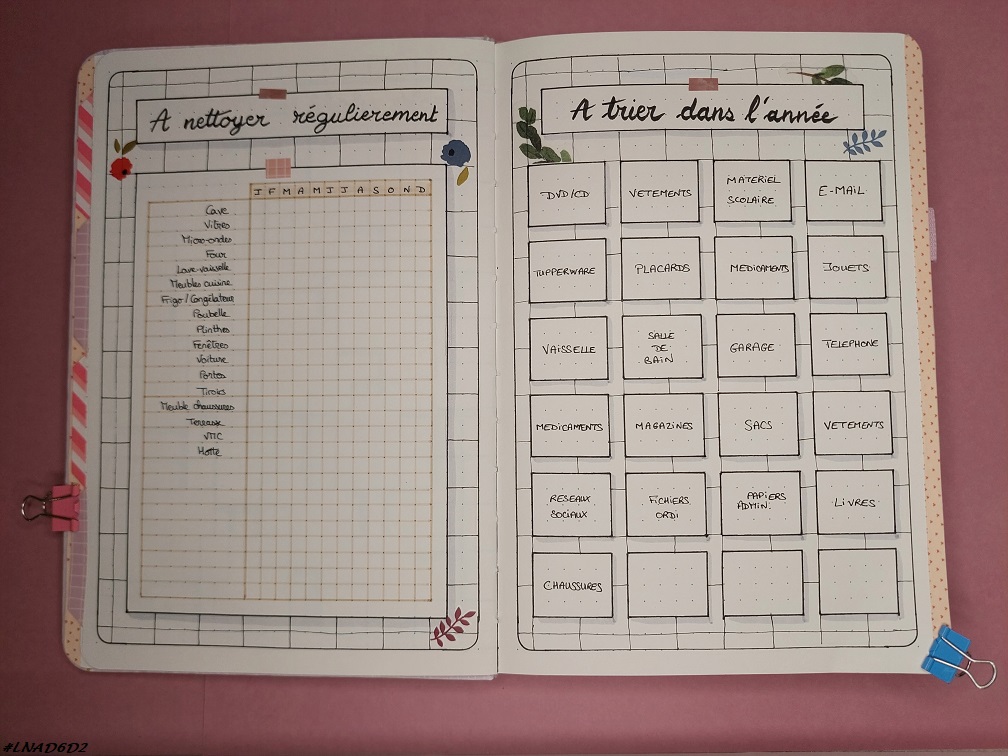 A nettoyer régulierement
J F M A M J J A S O N D
Cave
Vitres
Micro-ondes
Four
Lave-vaisselle
Meubles cuisine
Frigo / Congélateur
Poubelle
Plinthes
Fenêtres
Voiture
Portes
Tiroirs
Meuble chaussures
Terrasse
VMC
Hotte
A trier dans l'année
DVD/CD
VETEMENTS
MATERIEL
SCOLAIRE
E-MAIL
TUPPERWARE
PLACARDS
MEDICAMENTS
JOUETS
VAISSELLE
SALLE
DE
BAIN
GARAGE
TELEPHONE
MEDICAMENTS
MAGAZINES
SACS
VETEMENTS
RESEAUX
SOCIAUX
FICHIERS
ORDI
PAPIERS
ADMIN.
LIVRES
CHAUSSURES
#LNAD6D2